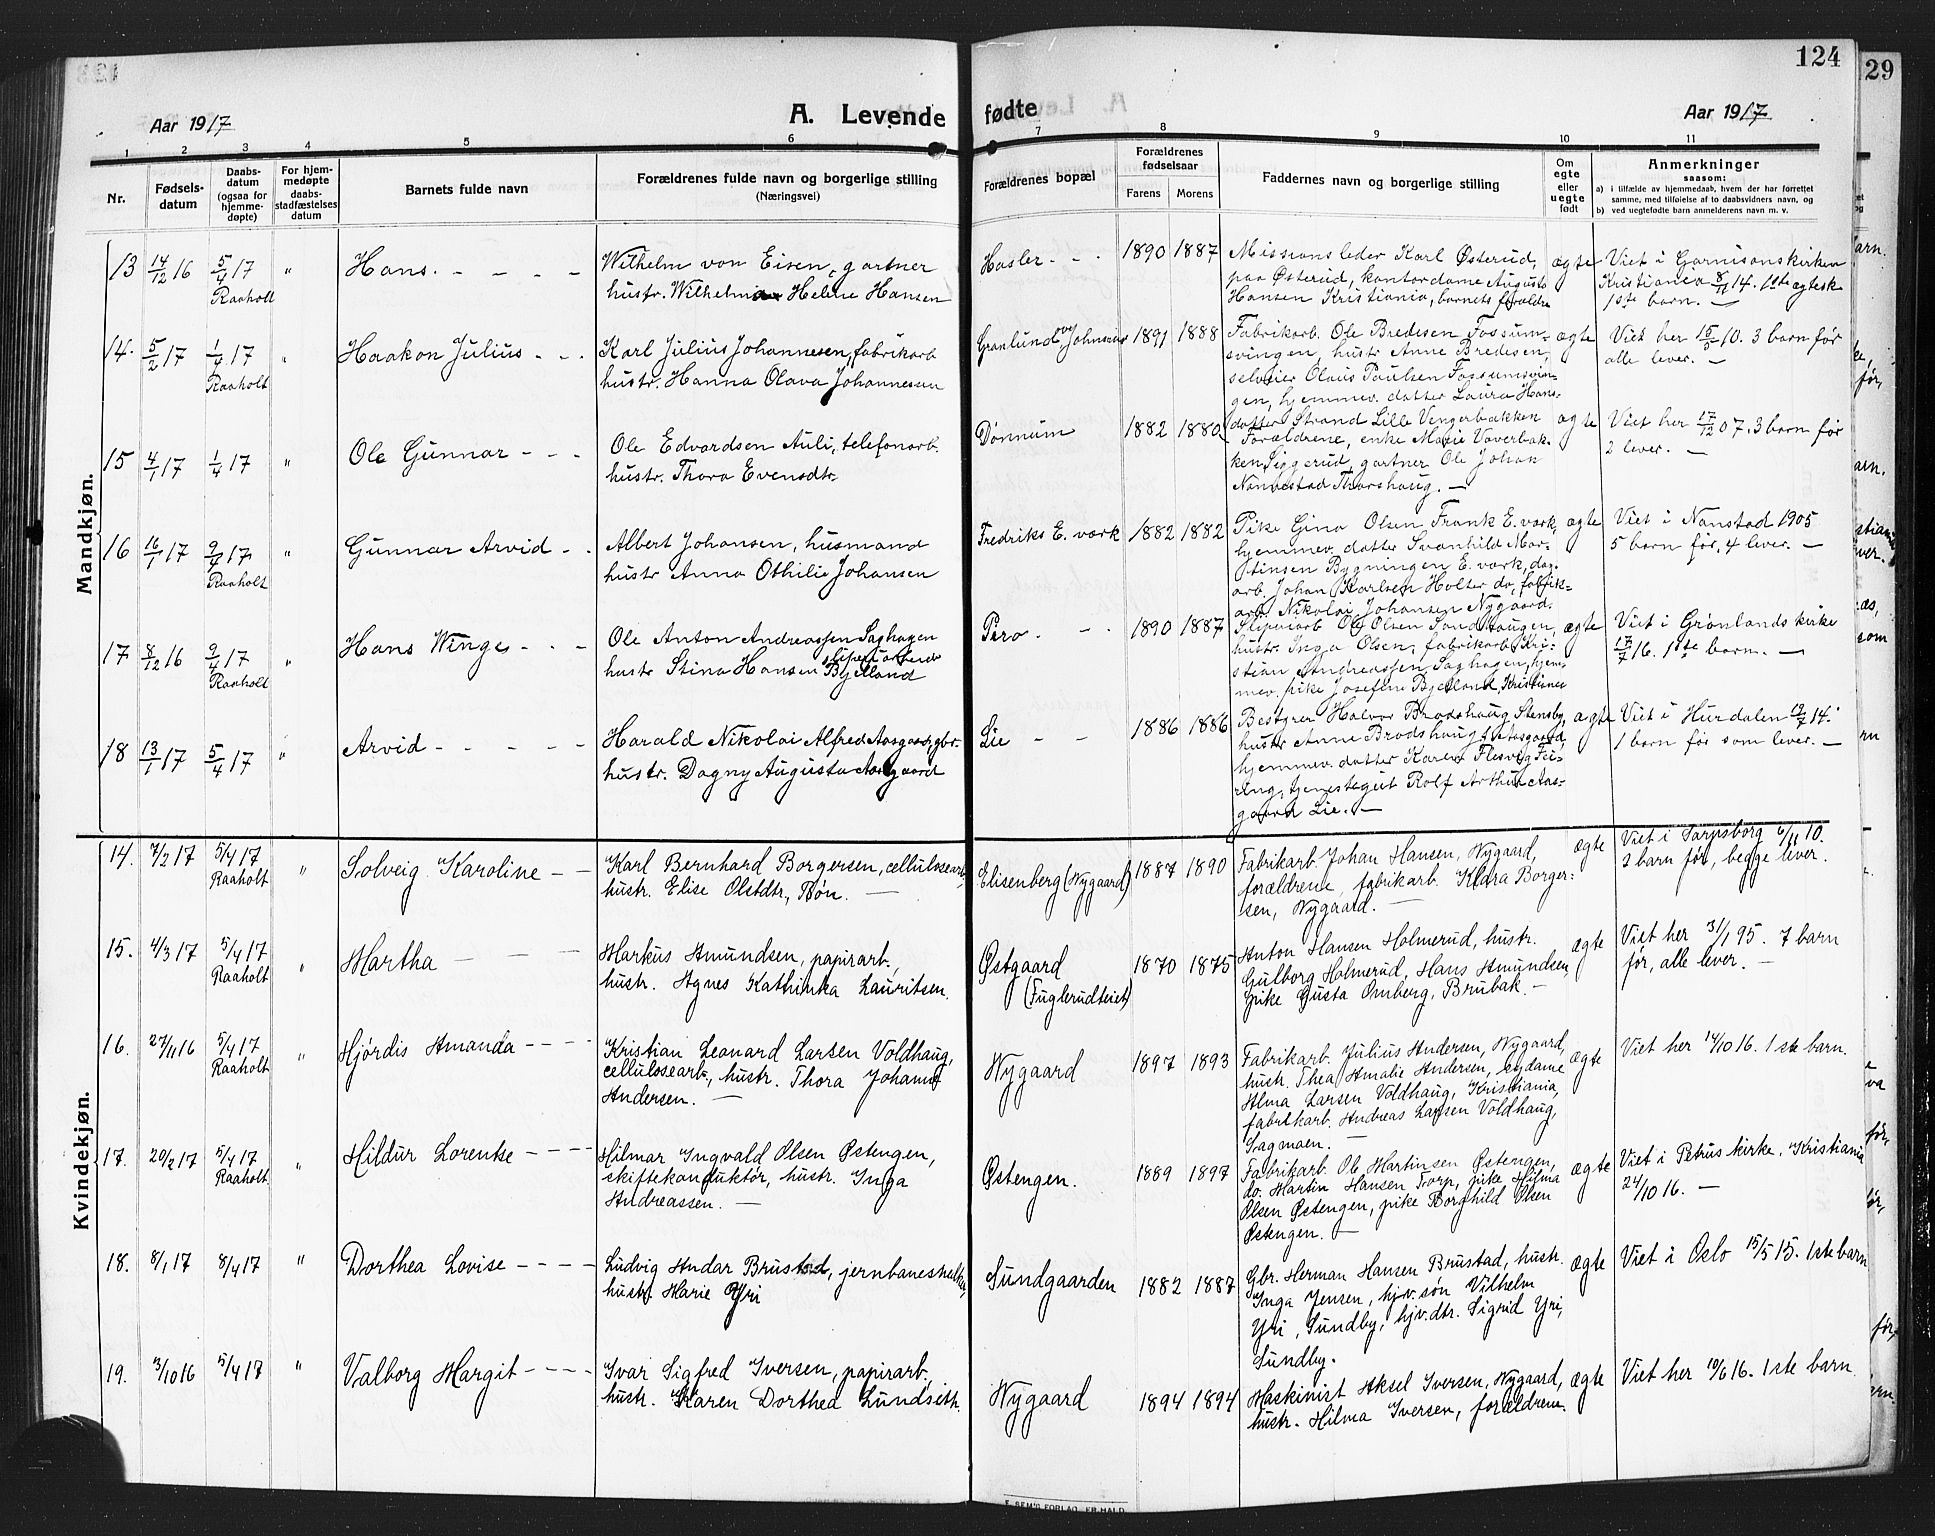 124
29
Aar 1917
A. Levende fødte
Aar 1917
1 2 3 4 5 6 7 8 9 10 11
Nr.
Fødsels-
datum
Daabs-
datum
(ogsaa for
hjemme-
døpte)
For hjem-
medøpte
daabs-
stadfæstelses
datum
Barnets fulde navn
Forældrenes fulde navn og borgerlige stilling
(Næringsvei)
Forældrenes bopæl
Forældrenes
fødselsaar
Farens Morens
Faddernes navn og borgerlige stilling
Om
egte
eller
uegte
født
Anmerkninger
saasom:
a) i tilfælde av hjemmedaab, hvem der har forrettet
samme, med tilføielse af to daabsvidners navn, og
b) ved uegtefødte barn anmelderens navn m. v.
Mandkjøn.
13 14/12 16 5/4 17 " Hans.
Raaholt
Wilhelm von Eisen, gartner
hustr. Wilhelmia Helene Hansen
Hasler 1890 1887
Missionsleder Karl Østerud,
paa Østerud, kontordame Augusta
Hansen Kristiania, barnets foraldre
ægte
Viet i Garnisonskirken
Kristiania 8/11 14. 1ste ægtesk
1ste barn. —
14. 5/2 17 1/4 17 " Haakon Julius
Raaholt
Karl Julius Johannesen, fabrikarb
hustr. Hanna Olava Johannesen
Granlund v. Johnsrud 1891 1888
Fabrikarb. Ole Bredesen Fossum-
svingen, hustr Anne Bredesen,
selveier Olaus Paulsen Fossumsvin-
gen, hjemmev. datter Laura Hans-
datter Strand Lille Vengerbakken
ægte
Viet her 15/5 10. 3 barn før
alle lever. —
15 4/1 17 1/4 17 " Ole Gunnar
Ole Edvardsen Auli, telefonarb.
hustr. Thora Evensdtr.
Dønnum 1882 1880
Foraldrene, enke Marie Vaverbak-
ken Siggerud, gartner Ole Johan
Nannestad Thorshaug. —
ægte
Viet her 17/12 07. 3 barn før
2 lever. —
16 16/1 17 9/4 17 " Gunnar Arvid
Raaholt
Albert Johansen, husmand
hustr Anna Othilie Johansen
Fredriks E. værk 1882 1882
Pike Gina Olsen, Frank E. værk,
hjemmev. datter Svanhild Mar-
tinsen Bygningen E. værk, dag-
arb. Johan Karlsen Holter do, fabrik-
arb. Nikolai Johansen Nygaard.
ægte
Viet i Nanstad 1905
5 barn før, 4 lever. —
17 8/12 16 9/4 17 " Hans Winge
Raaholt
Ole Anton Andreassen Saghagen
sliperiarbeider
hustr Stina Hansen Bjelland
Pero. 1890 1887
Sliperiarb Ole Olsen Sandhaugen,
hustr. Inga Olsen, fabrikarb. Kri-
stian Andreassen Saghagen, hjem-
mev. pike Josefine Bjelland, Kristiania
ægte
Viet i Grønlands kirke
17/7 16. 1ste barn. —
18 13/1 17 5/4 17 " Arvid
Harald Nikolai Alfred Aasgaard, gbr.
hustr. Dagny Augusta Aasgaard
Lie 1886 1886
Bestyrer Halvor Brodshaug, Stensby,
hustr Anne Brodshaug, Aasgaard
hjemmev. datter Karen Flesvig Fei-
ring, tjenestegut Rolf Arthur Aas-
gaard Lie. —
ægte
Viet i Hurdalen 19/7 14.
1 barn før som lever. —
Kvindekjøn.
14. 7/2 17 5/4 17 " Solveig Karoline
Raaholt
Karl Bernhard Borgersen, cellulosearb.,
hustr. Elise Olsdtr., Bøn. —
Elisenberg (Nygaard) 1887 1890
Fabrikarb. Johan Hansen, Nygaard,
forældrene, fabrikarb. Klara Borger-
sen, Nygaard. —
ægte
Viet i Sarpsborg 6/11 10.
2 barn før, begge lever.
15. 4/3 17 5/4 17 " Martha
Raaholt
Markus Amundsen, papirarb.,
hustr. Agnes Kathinka Lauritsen.
Østgaard
(Fuglerudteiet) 1870 1875
Anton Hansen Holmerud, hustr.
Gulborg Holmerud, Hans Amundsen,
pike Gusta Omberg, Brubak. —
ægte
Viet her 31/1 95. 7 barn
før, alle lever. —
16. 27/11 16 5/4 17 " Hjørdis Amanda
Raaholt
Kristian Leonard Larsen Voldhaug,
cellulosearb., hustr. Thora Johanne
Andersen. —
Nygaard 1897 1893
Fabrikarb. Julius Andersen, Nygaard,
hustr. Thea Amalie Andersen, sydame
Alma Larsen Voldhaug, Kristiania,
fabrikarb. Andreas Larsen Voldhaug,
Sagmoen. —
ægte
Viet her 14/10 16. 1ste barn.
17. 20/2 17 5/4 17 " Hildur Lorentse
Raaholt
Hilmar Ingvald Olsen Østengen,
skiftekonduktør, hustr. Inga
Andreassen. —
Østengen. 1889 1897
Fabrikarb. Ole Martinsen Østengen,
do. Martin Hansen Torp, pike Hilma
Olsen Østengen, pike Borghild Olsen
Østengen. —
ægte
Viet i Petrus kirke, Kristiania
24/10 16. —
18. 8/1 17 8/4 17 " Dorthea Lovise
Ludvig Andar Brustad, jernbanesnekker,
hustr. Marie Yri
Sundgaarden 1882 1887
Gbr. Herman Hansen Brustad, hustr.
Inga Jensen, hjv. søn Vilhelm
Yri, Sundby, hjv. dtr. Sigrid Yri,
Sundby.
ægte
Viet i Oslo 15/5 15. 1ste barn
19. 3/10 16 5/4 17 " Valborg Margit
Ivar Sigfred Iversen, papirarb.,
hustr. Karen Dorthea Lundseth.
Nygaard 1894 1894
Maskinist Aksel Iversen, Nygaard,
hustr. Hilma Iversen, forældrene.
ægte
Viet her 10/6 16. 1ste barn
E. SEM'S FORLAG, FR.HALD